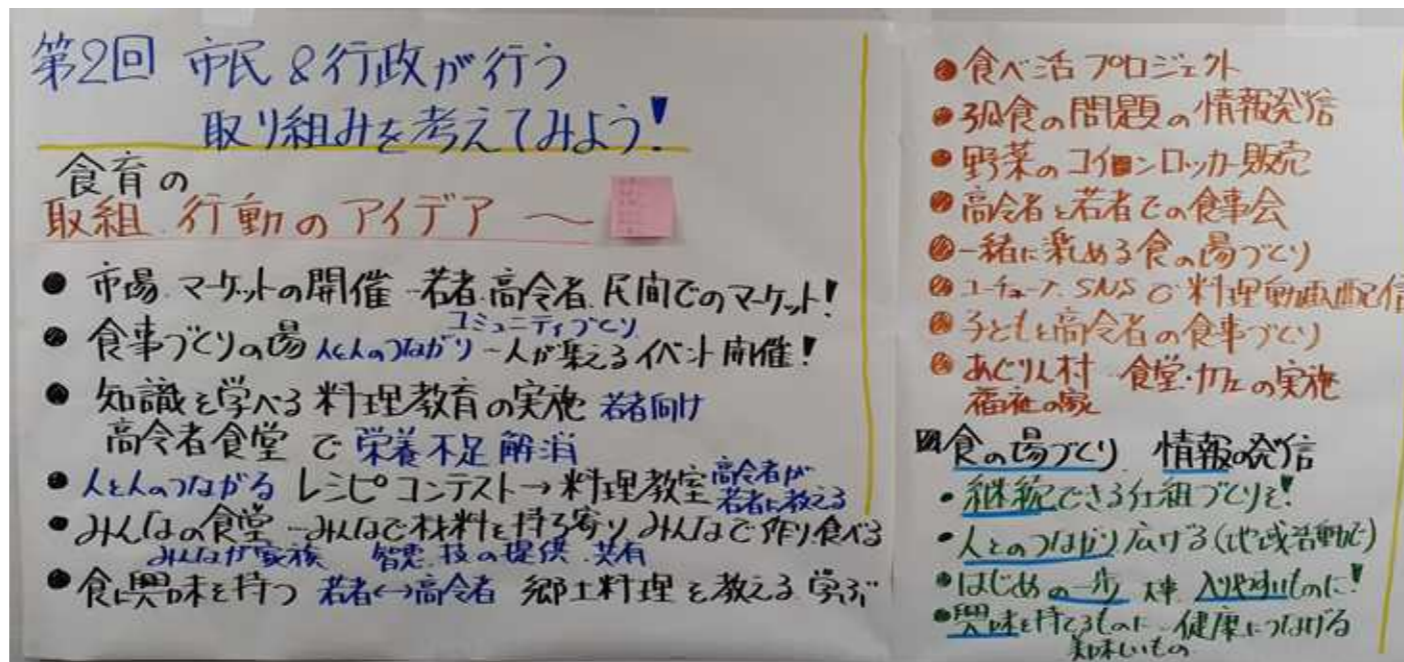 第2回 市民&行政が行う
取り組みを考えてみよう!
食育の
取組 行動のアイデア 〜
● 市場 マーケットの開催 - 若者.高令者.民間でのマーケット!
コミュニティづくり
● 食事づくりの場 人と人のつながり 〜人が集えるイベント開催!
● 知識を学べる料理教育の実施 若者向け
高令者食堂 で 栄養不足解消
● 人と人のつながる レシピコンテスト→料理教室 高令者が
若者に教える
● みんなの食堂 - みんなで材料を持ち寄り みんなで作り食べる
みんなが家族 智恵.技の提供.共有
● 食に興味を持つ 若者↔高令者 郷土料理を教える 学ぶ
● 食べ活プロジェクト
● 孤食の問題の情報発信
● 野菜のコインロッカー販売
● 高令者と若者での食事会
● 一緒に楽める食の場づくり
● ユーチューブ.SNSで料理動画配信
● 子どもと高令者の食事づくり
● あぐりん村 食堂・カフェの実施
福祉の家
食の場づくり 情報の発信
・継続できる仕組づくりを!
・人とのつながり広げる(地域活動で)
● はじめの一歩 大事 入りやすいものに!
● 興味を持てるものに - 健康につなげる
美味しいもの